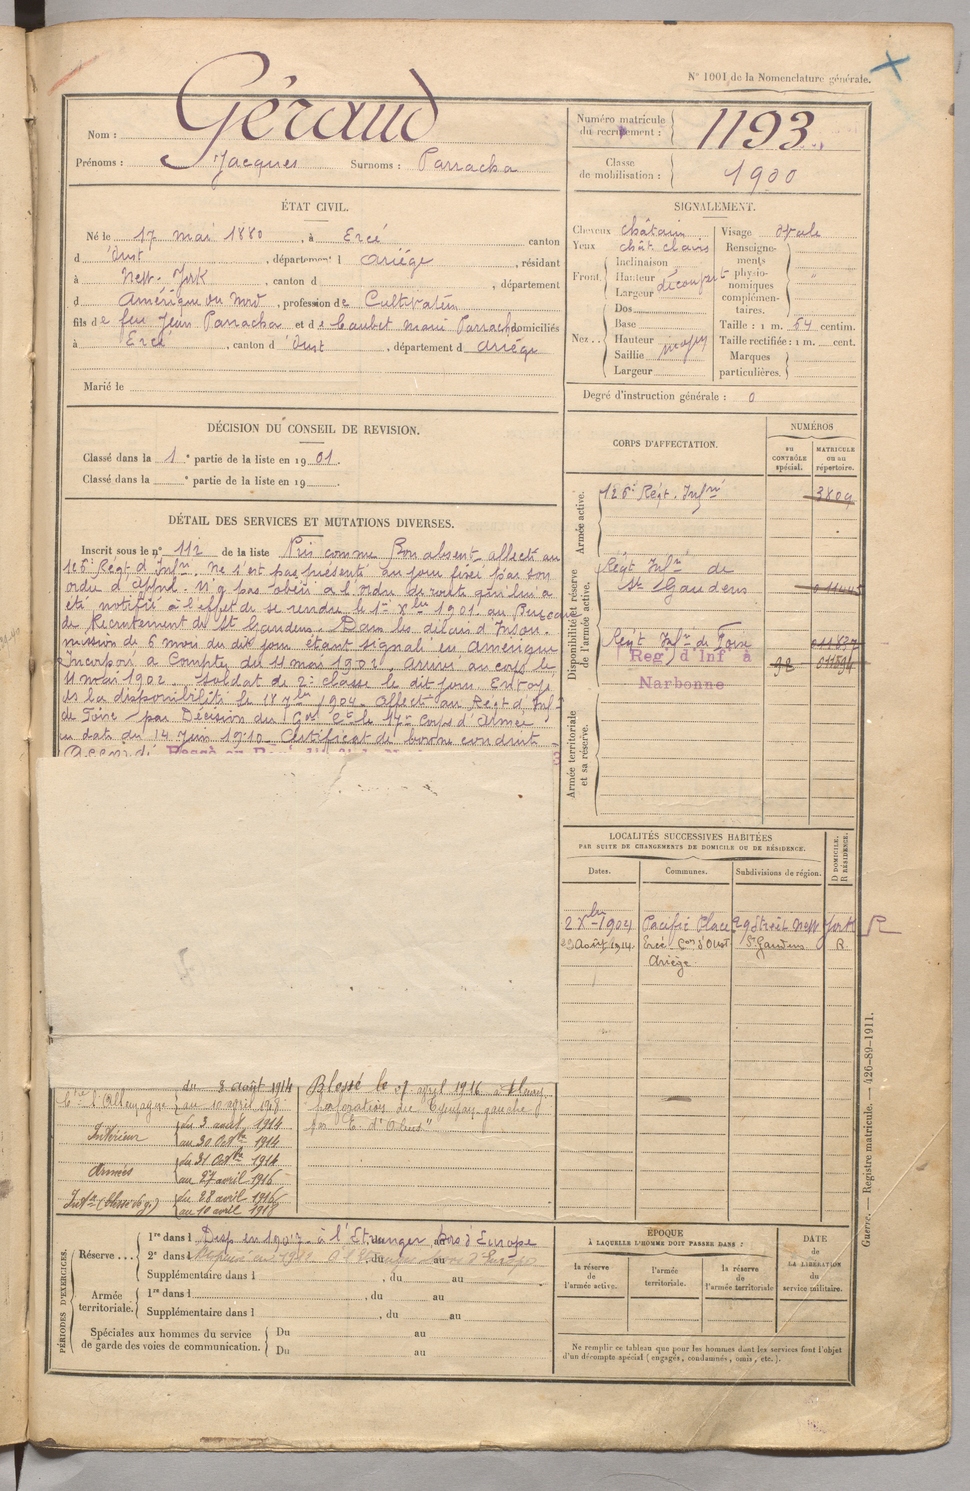 N° 1001 de la Nomenclature générale.
Nom : Géraud
Prénoms : Jacques Surnoms : Parracha
Numéro matricule du recrutement : 1193
Classe de mobilisation : 1900
ÉTAT CIVIL.
Né le 17 mai 1880, à Ercé canton
d'Oust, département d Ariège, résidant
à New-York, canton d , département
d Amérique du Nord, profession de Cultivateur
fils de feu Jean Parracha et de Caubet Marie Parracha domiciliés
à Ercé, canton d'Oust, département d Ariège
Marié le
SIGNALEMENT.
Cheveux châtain
Yeux chât clairs
Front. Inclinaison
Hauteur
Largeur
découvert
Nez.. Dos
Base
Hauteur
Saillie
Largeur
moyen
Visage Ovale
Renseignements physionomiques complémentaires. "
Taille : 1 m. 54 centim.
Taille rectifiée : 1 m. cent.
Marques particulières.
Degré d'instruction générale : 0
DÉCISION DU CONSEIL DE REVISION.
Classé dans la 1e partie de la liste en 1901.
Classé dans la e partie de la liste en 19 .
DÉTAIL DES SERVICES ET MUTATIONS DIVERSES.
Inscrit sous le n° 112 de la liste Pris comme Bon absent affecté au
126e Régt d'Infrie. Ne s'est pas présenté au jour fixé par son
ordre d'appel. N'a pas obéi à l'ordre de route qui lui a
été notifié à l'effet de se rendre le 1er Xbre 1901 au Bureau
de Recrutement de St Gaudens. Dans les délais d'Insou-
mission de 6 mois du dit jour étant signalé en Amérique
Incorporé à Compter du 11 mai 1902. Arrivé au corps le
11 mai 1902. Soldat de 2e classe le dit jour. Envoyé
ds la disponibilité le 18 7bre 1904. Affecté au Régt d'Infrie
de Foix par Décision du Gal Ct le 17e Corps d'Armée
en date du 14 Juin 1910. Certificat de bonne conduite
Accordé
CORPS D'AFFECTATION.
NUMÉROS
au CONTRÔLE spécial.
MATRICULE ou au répertoire.
Armée active.
126e Régt. Infrie 3809
Disponibilité et réserve de l'armée active.
Régt Infrie de
St Gaudens
Régt Infrie de Foix
Reg d'Infie à
Narbonne
Armée territoriale et sa réserve.
LOCALITÉS SUCCESSIVES HABITÉES
PAR SUITE DE CHANGEMENTS DE DOMICILE OU DE RÉSIDENCE.
Dates. Communes. Subdivisions de région. D DOMICILE, R RÉSIDENCE.
2 Xbre 1904 Pacific Place 29 Street New York R
23 Août 1914 Ercé Con d'Oust St Gaudens R.
Ariège
Cgne c. l'Allemagne du 3 août 1914
au 10 avril 1918
Intérieur du 3 août 1914
au 30 Octbre 1914
Armées du 31 Octbre 1914
au 27 avril 1916
Intér (blessé de g.) du 28 avril 1916
au 10 avril 1918
Blessé le avril 1916 à Fleury
perforation du Tympan gauche
par E. d'Obus"
PÉRIODES D'EXERCICES.
Réserve... 1re dans l Disp en 1907 à l'Etranger hors d'Europe
2e dans l , du au
Supplémentaire dans l , du au
Armée territoriale. 1re dans l , du au
Supplémentaire dans l , du au
Spéciales aux hommes du service de garde des voies de communication. Du au
Du au
ÉPOQUE
À LAQUELLE L'HOMME DOIT PASSER DANS :
la réserve de l'armée active.
l'armée territoriale.
la réserve de l'armée territoriale
DATE de LA LIBÉRATION du service militaire.
Ne remplir ce tableau que pour les hommes dont les services font l'objet
d'un décompte spécial (engagés, condamnés, omis, etc.).
Guerre. — Registre matricule. — 426-89-1911.